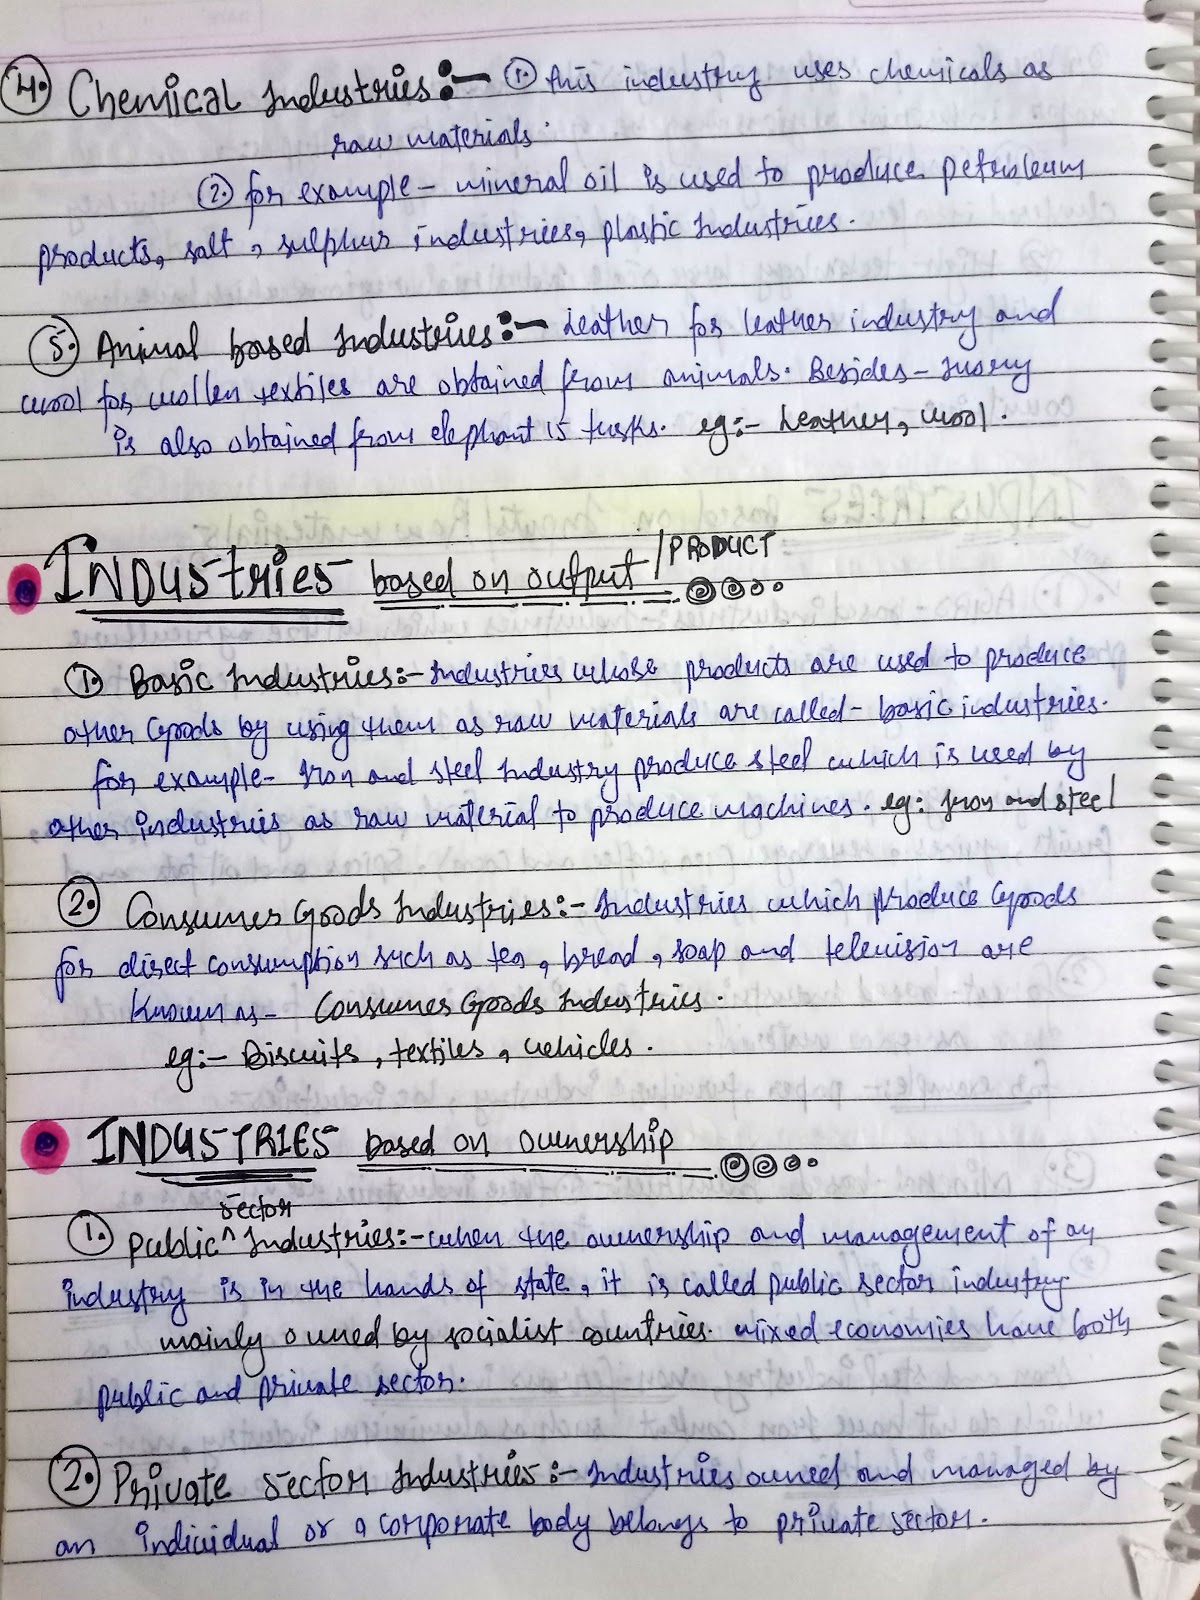 4. Chemical Industries:- 1. this industry uses chemicals as
raw materials.
2. for example - mineral oil is used to produce petroleum
products, salt, sulphur industries, plastic Industries.
5. Animal based Industries:- Leather for leather industry and
wool for wollen textiles are obtained from animals. Besides - Ivory
is also obtained from elephant's tusks. eg:- Leather, wool.
INDUStries based on output/PRODUCT
1. Basic Industries:- Industries whose products are used to produce
other Goods by using them as raw materials are called - basic industries.
for example - Iron and steel Industry produce steel which is used by
other industries as raw material to produce machines. eg: Iron and steel
2. Consumer Goods Industries:- Industries which produce Goods
for direct consumption such as tea, bread, soap and television are
Known as - Consumer Goods Industries.
eg:- Biscuits, textiles, vehicles.
INDUSTRIES based on ownership
1. Public sector Industries:- when the ownership and management of an
industry is in the hands of state, it is called public sector industry
mainly owned by socialist countries. mixed economies have both
public and private sector.
2. Private sector Industries:- Industries owned and managed by
an individual or a corporate body belongs to private sector.